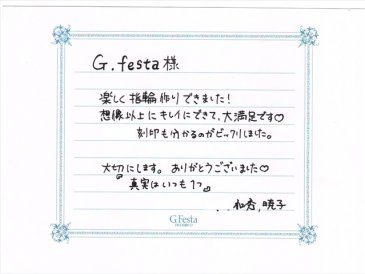 G.festa 様
楽しく指輪作りできました!
想像以上にキレイにできて、大満足です♡
刻印も分かるのがビックリしました。
大切にします。ありがとうございました♡
『真実はいつも1つ』
暁子
G.Festa